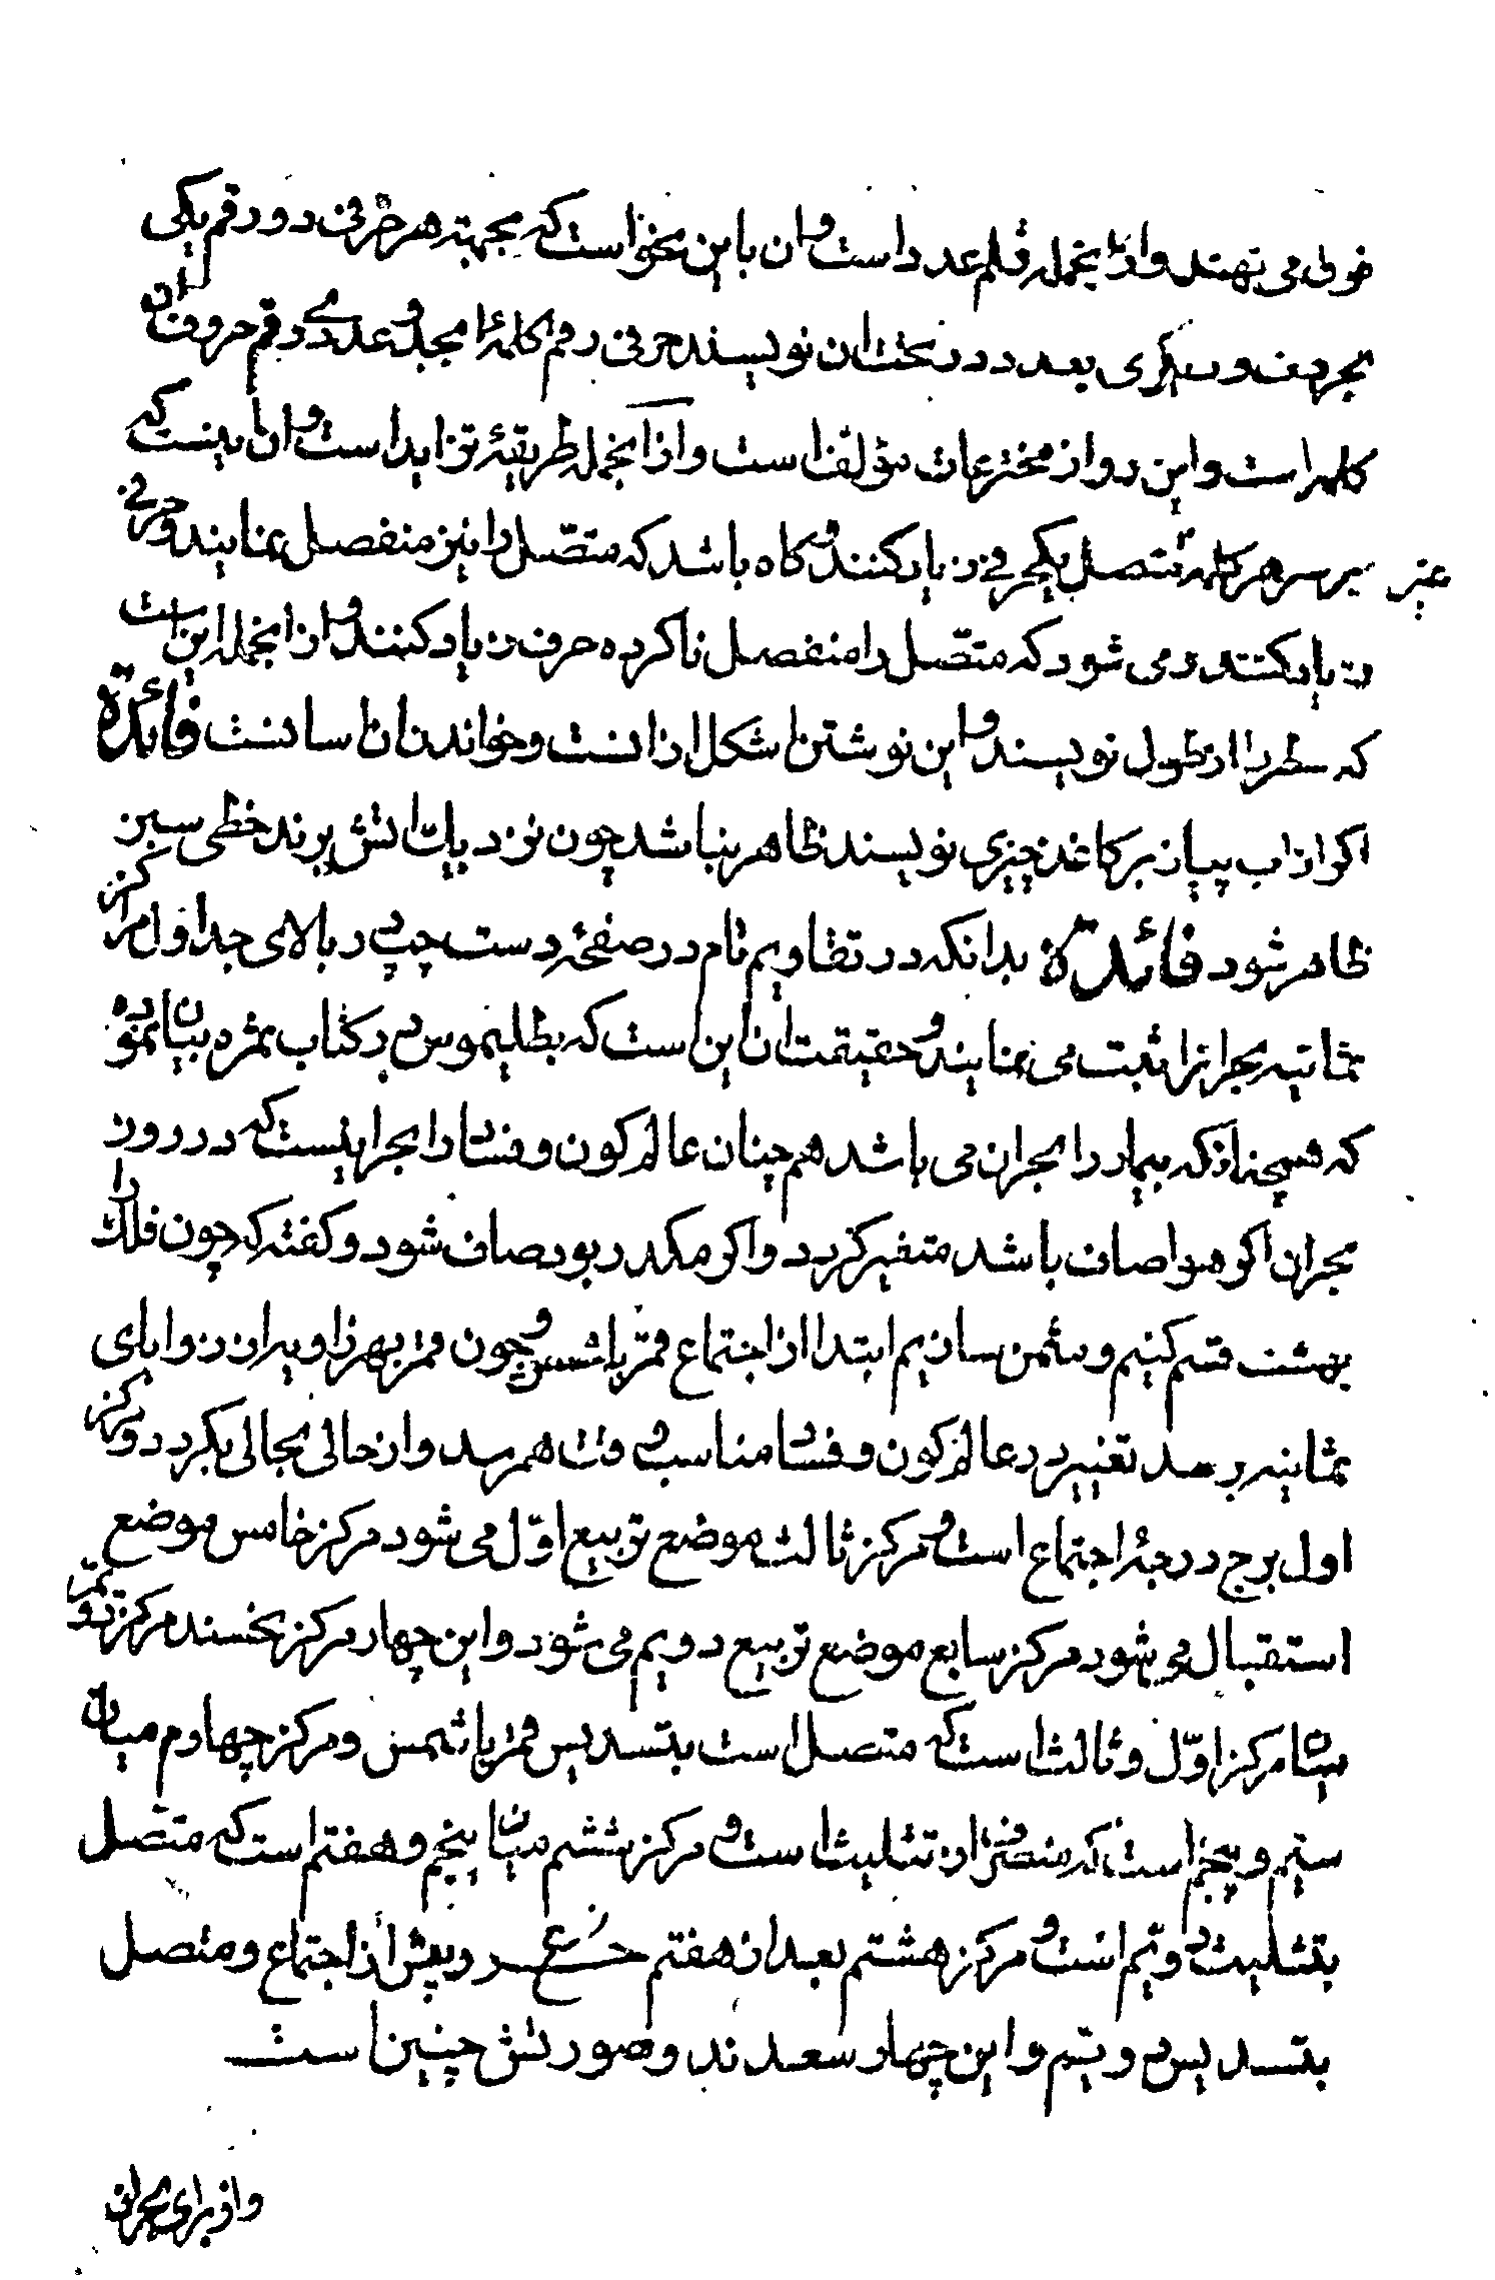 خولی می نهند وازانجمله قلم عدد است وان باین نحو است که بجهته هر حرفی دو رقم یکی
بحروف و دیگری بعدد در تخت ان نویسند حرفی رقم کلمهٔ ابجد و عددی رقم حروف ان
کلمه است واین دو از مخترعات مؤلفست وازانجمله طریقهٔ تزاید است وان اینست که
بر سر هر کلمهٔ متصل یکحرفی زیاد کنند و کاه باشد که متصل را نیز منفصل نمایند و حرفی
غیر
زیاد کنند و می شود که متصل را منفصل ناکرده حرف زیاد کنند و ازانجمله این است
که سطر را از طول نویسند و این نوشتن اشکل ازانست و خواندن ان اسانست فائدة
اکر از اب پیاز بر کاغذ چیزی نویسند ظاهر نباشد چون نزدیک اتش برند خطی سبز
ظاهر شود فائدة بدانکه در تقاویم تام در صفحهٔ دست چپ در بالای جداول مراکز
ثمانیه بحرانرا ثبت می نمایند و حقیقت ان این است که بطلیموس در کتاب ثمره بیان نموده
که همچنانکه بیمار را بحران می باشد هم چنان عالم کون و فساد را بحرانیست که در روز
بحران اکر هوا صاف باشد متغیر کردد واکر مکدر بود صاف شود و کفته که چون فلک را
بهشت قسم کنیم و مثمن سازیم ابتدا از اجتماع قمر با شمس و چون قمر بهر زاویه از زوایای
ثمانیه برسد تغییر در عالم کون و فساد مناسب وقت هم رسد واز حالی بحالی بکردد ومرکز
اول برج درجهٔ اجتماع است و مرکز ثالث موضع تربیع اوّل می شود مرکز خامس موضع
استقبال می شود مرکز سابع موضع تربیع دویم می شود واین چهار مرکز نحسند مرکز دویم
میان مرکز اوّل و ثالث است که متصل است بتسدیس قمر با شمس و مرکز چهارم میان
سیّم و پنجم است که متصل از تثلیث است و مرکز ششم میان پنجم و هفتم است که متصل
بتثلیث دویم است و مرکز هشتم بعد از هفتم و پیش از اجتماع و متصل
بتسدیس دویم واین چهار سعدند و صورتش چنین است
واز برای بحران